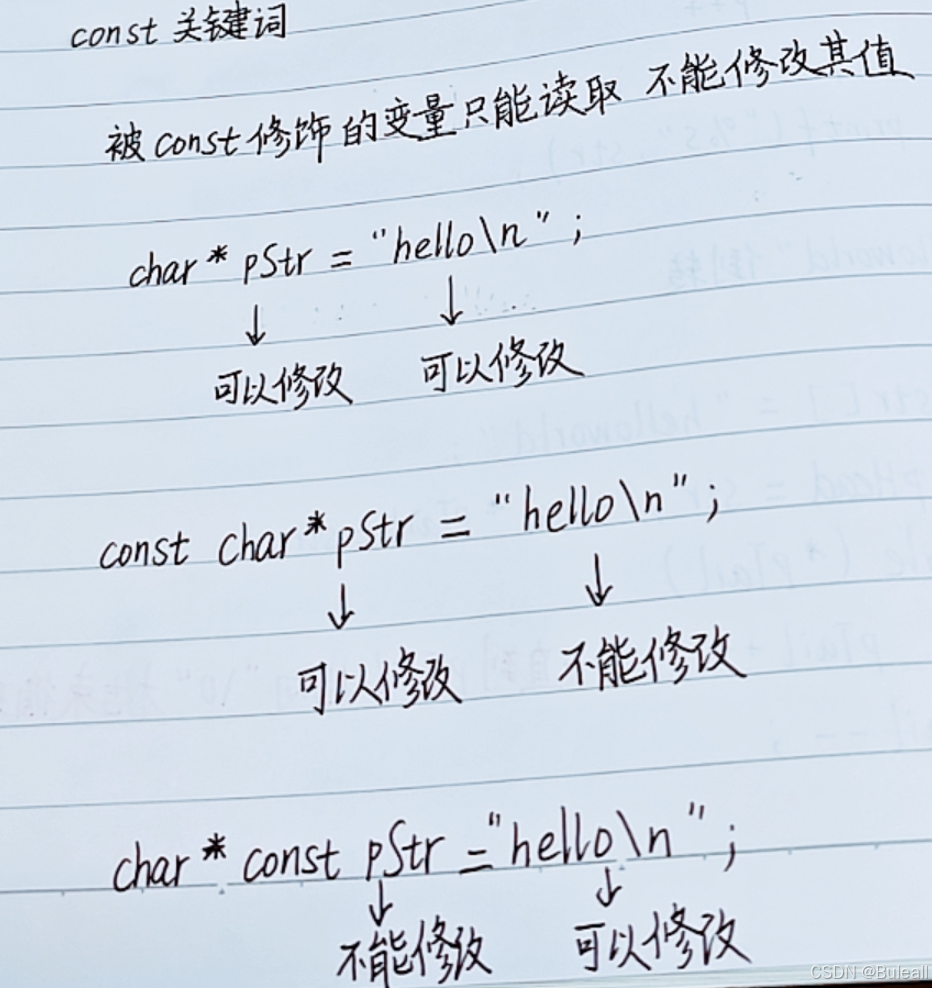 const 关键词
被const修饰的变量只能读取 不能修改其值
char* pStr = "hello\n";
↓ ↓
可以修改 可以修改
const char* pStr = "hello\n";
↓ ↓
可以修改 不能修改
char* const pStr = "hello\n";
↓ ↓
不能修改 可以修改
CSDN @Buleall